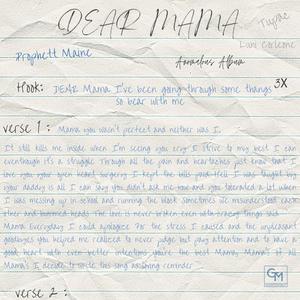 DEAR MAMA
Tupac
Luni Corleone
Prophett Maine
Annvelius Album
Hook: DEAR Mama I've been going through some things 3X
so bear with me
verse 1: Mama you wasn't perfect and neither was I.
It still kills me inside when I'm seeing you cry I strive to my best I can
eventhough it's a struggle Through all the pain and heartaches just know that I
love you your open heart surgery I kept the bills paid Hell I was taught by
you daddy is all I can say you didn't ask me now and you tolerated a lot when
I was messing up in school and running the block sometimes we misunderstood each
other and bummed heads The love is never broken even with crazy things said
Mama Everyday I could apologize for the stress I caused and the unpleasant
goodbyes you helped me realized to never judge but pay attention and to have a
good heart with even better intentions you're the best Mama, Mama's if all
Mama's I decide to write this song as loving reminder
GM
verse 2: